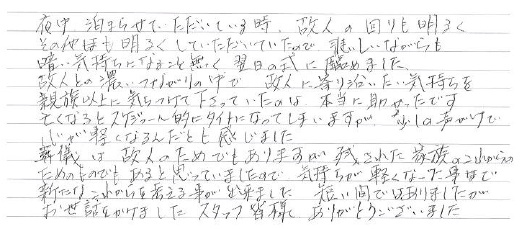 夜中 泊まらせていただいている時、故人の回りも明るく
その他ほも明るくしていただいていたので 悲しいながらも
暗い気持ちになること無く 翌日の式に臨めました
故人との濃いつながりの中で 故人に寄り沿いたい気持ちを
親族以上に気をつけて下さっていたのは、本当に助かったです
亡くなるとスケジュール的にタイトになってしまいますが 少しの声がけで
心が軽くなるんだとも感じました
葬儀は 故人のためでもありますが 残された 家族のこれからの
ためのものでも あると思っていましたので 気持ちが軽くなった事で
新たなこれからを考える事が出来ました 短い間ではありましたが
お世話をかけました スタッフ皆様 ありがとうございました